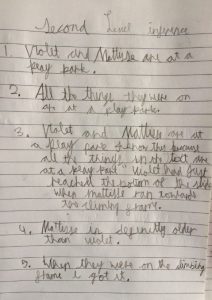 Second Level inference
1. Violet and Mattuse are at a
play park.
2. All the things they were on
are at a play park.
3. Violet and Mattuse are at
a play park because
all the things in the text are
at a play park "Violet had just
reached the bottom of the slide
when mattuse ran towards
the climing frame".
4. Mattuse is definitly older
than violet.
5. When they were on the climbing
frame i got it.